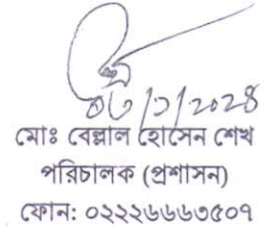 ০৮/১/২০২৪
মোঃ বেল্লাল হোসেন শেখ
পরিচালক (প্রশাসন)
ফোন: ০২২২৬৬৬৩৫০৭